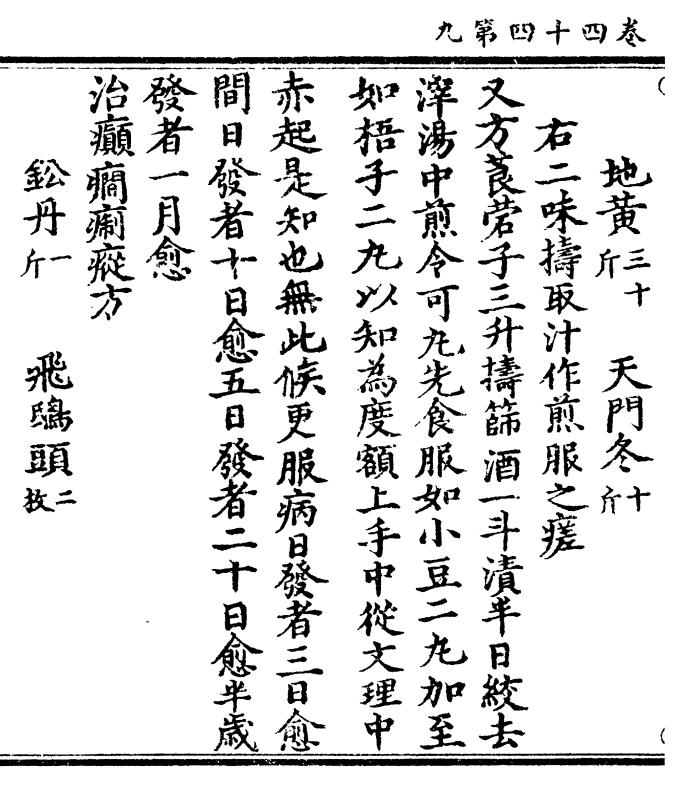 卷四十四第九
地黃三十斤 天門冬十斤
右二味擣取汁作煎服之瘥
又方莨菪子三升擣篩酒一斗漬半日絞去
滓湯中煎令可丸先食服如小豆二丸加至
如梧子二丸以知為度額上手中從文理中
赤起是知也無此候更服病日發者三日愈
間日發者十日愈五日發者二十日愈半歲
發者一月愈
治癲癇瘈瘲方
鈆丹一斤 飛鴟頭二枚